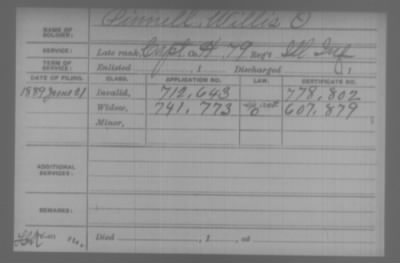 NAME OF SOLDIER: Pinnell, Willis O
SERVICE: Late rank, Capt Co. H, 79 Reg't Ill Inf
TERM OF SERVICE: Enlisted , 1 Discharged , 1
DATE OF FILING. CLASS. APPLICATION NO. LAW. CERTIFICATE NO.
1889 June 21 Invalid, 712,643 778,802
Widow, 741,773 607,879
Minor,
ADDITIONAL SERVICES:
REMARKS:
Died , 1 , at